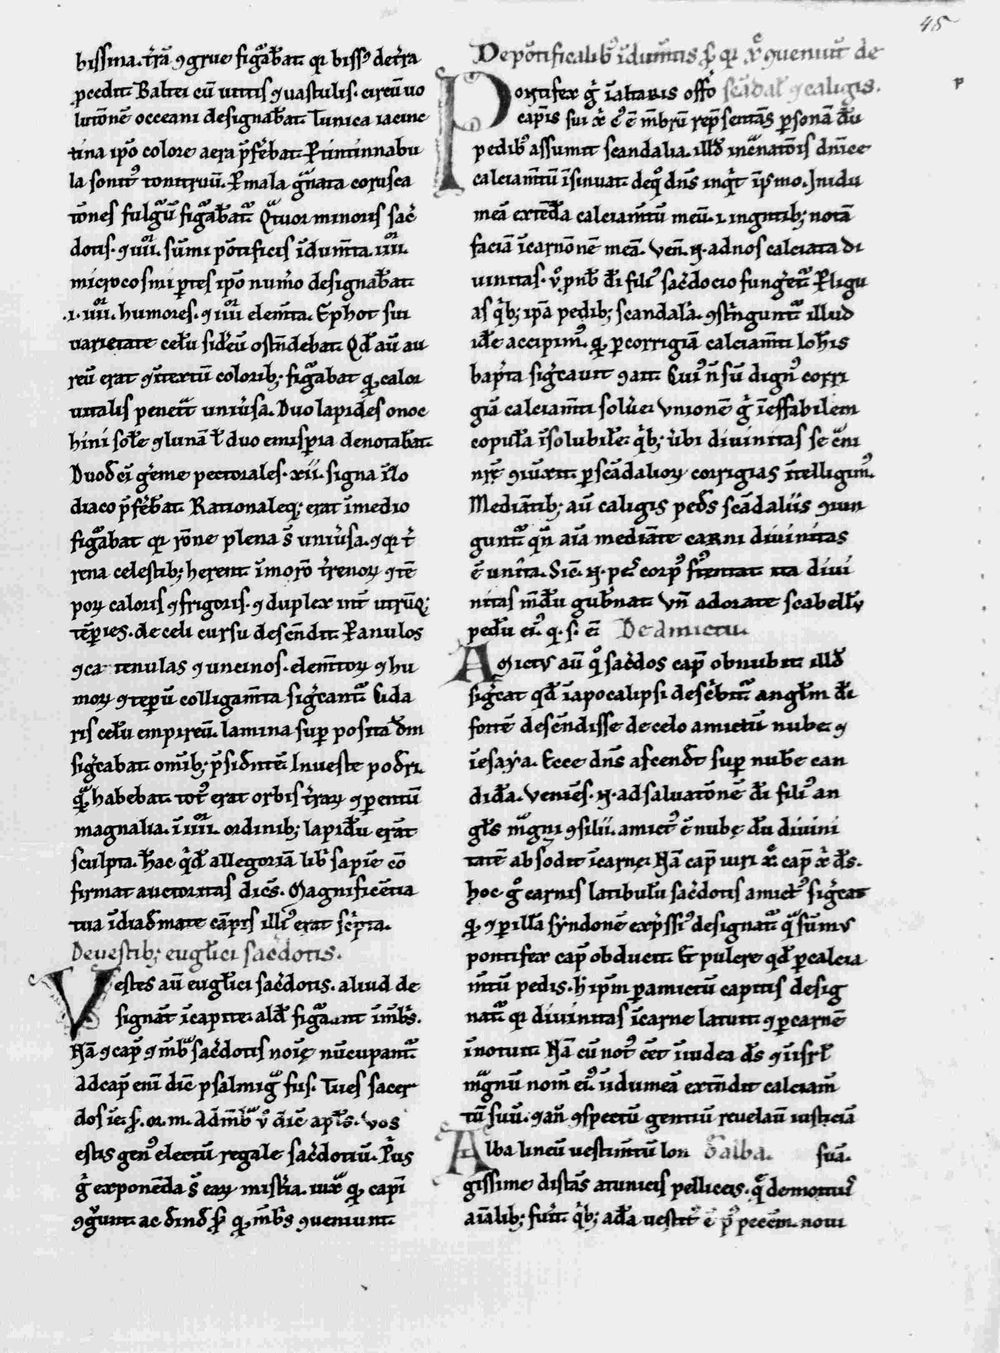 45
bissina. t̄rā ꝯgrue figᵃbat. qr bissꝰ det̄ra
ꝓcedit. Baltei cū uittis ꝯuastulis. circū uo
lutionē occeani designabat. Tunica iacinc
tina ip̄o colore aera p̄ferebat. Per tintinnabu
la sonitꝰ tonitruū. Per mala gᵃnata corusca
tiōnes fulgᵃū figᵃbat. Qᵃtuor minoris sac̄
dotis. ꝯ uiii. sūmi pōtificis īdum̄ta. iiiior.
microcosmi ꝑtes ip̄o num̄o designabat.
.i. iiiior. humores. ꝯ iiii elem̄ta. Ephot sui
uarietate celū sid̄eū ostn̄debat. Qd̄ aū au
reū erat ꝯtextū colorib; figᵃbat qꝫ calor
uitalis penetᵃt uniūsa. Duo lapides onoc
hini sole ꝯ lunā ł duo emisꝑia denotabat.
Duodeci gēme pectorales. xii. signa īzo
diaco p̄ferebat. Rationaleqꝫ erat īmedio
figᵃbat qr rōne plena s̄ uniūsa. ꝯ qr t̄
rena celestib; herent.
rena caloris ꝯ frigoris. ꝯ duplex int̄ utrūqꝫ
tēꝑies. de celi cursu descēdit. Per anulos
ꝯ catenulas ꝯ uncinos. elem̄toꝝ ꝯ hu
moꝝ ꝯ teꝑū colligam̄ta sigᵉcantᵃ. Cida
ris celū empireū. lamina suꝑ posita dm̄
sigᵉcabat. omīb; p̄sidentē. In ueste podri.
qᵃ habebat. totꝰ erat orbis t̄raꝝ ꝯ parentū
magnalia. ī iiii. ordinib; lapidū erāt
sculpta. Hac qᵈ allegoriā lib̄ sapīe cō
firmat auctoritas dic̄s. Magnificētia
tua ī diadmate capis illiꝰ erat sc̄pta.
De uestib; euglici sac̄dotis.
Vestes aū euglici sac̄dotis. aliud de
signāt īcapite. ald̄ figᵃant īmb̄s.
Nā ꝯ cap̄ ꝯ mb̄ᵃ sac̄dotis noīe nūcupantᵃ
ad cap̄ eni dic̄ psalmigᵃfus. Tu es sacer
dos īe. ſ. o. m. Ad mb̄ᵃ ū dic̄ apl̄s. Vos
estis genꝰ electū regale sac̄dotiū. Pᵃus
gᵒ exponēda s̄ eaꝝ mist̄ia. iuxᵃ qꝫ capi
ꝯgᵒuunt. ac deinde qꝫ mb̄is ꝯueniunt.
De pōtificalib; īdum̄tis ꝯueniūt de
Pontifex gᵒ ī altaris offō scādal ꝯ caligis.
capis sui x̄ cꝰ ē mb̄rū rep̄sentās ꝑsonā dū
pedib; assumit scandalia. illd̄ īcarnatōis dn̄ice
calciam̄tū īsinuat. deqᵒ dn̄s inqᵗ īpsmo. In idu
meā extēdā calciam̄tū meū. i. in gentib; notā
faciā īcarnōnē meā. Ven̄. n. ad nos calciata di
uinitas. ꝟ ꝓ nob̄ dī filiꝰ sac̄docio fungētᵃ. Per ligu
as qᵇ; ipā pedib; scandalia ꝯstᵉnguntᵃ illud
idē accipimꝰ. qꝫ ꝑ corrigiā calciam̄ti Iohis
bap̄ta sigᵉcauit ꝯ ait. Cuiꝰ n̄ sū dignꝰ corri
giā calciam̄ti soluēi. Vnionē gᵒ īeffabilem
copulā īsolubilē. qᵇ; ūbi diuinitas se cᵃni
nr̄e ꝯiūxit. ꝑ scādalioꝝ corrigias īntelligimꝰ.
Mediātib; aū caligis pedes scādaliis ꝯiun
guntᵃ. qn̄ aīa mediāte carni diuinitas
ē unita. Sic̄. n. pes corpꝰ sustentat ita diui
nitas mūdū gub̄nat. Vn̄ adorate scabellū
pedū eiꝰ. q. s. ē De Amictu.
Amictꝰ aū qᵒ sac̄dos cap̄ obnubit. illd̄
sigᵉcat qd̄ ī apocalipsi desc̄bitᵃ. angl̄m dī
fortē descēdisse de celo amictū nube. ꝯ
īesaya. Ecce dn̄s ascendet suꝑ nubē can
didā. Veniēs. n. ad saluatōnē dī filiꝰ an
gl̄s magni ꝯsilii. amictꝰ ē nube. dū diuini
tatē abscōdit īcarne. Nā cap̄ uiri x̄c cap̄ x̄ ds̄.
Hoc gᵒ carnis latibulū sac̄dotis amictꝰ sigᵉcat
qꝫ ꝯ ꝑ illā syndonē exp̄ssiꝰ designatᵃ qᵃ sūmꝰ
pontifex cap̄ obducit. Et pulcre qd̄ ꝑ calcia
m̄tū pedis. h ip̄m ꝑ amictū capitis desig
natᵃ. qr diuinitas īcarne latuit. ꝯ ꝑ carnē
īnotuit. Nā cū notꝰ eet̄ ī iudea ds̄. ꝯ ī isrl̄
mᵃgnū nom̄ eiꝰ. ī idumeā extendit calciam̄
tū suū. ꝯ an̄ ꝯspectū gentiū reuelauit iusticiā
Alba lineū uestim̄tū lon De alba. suā.
gissime distās a tunicis pelliceis. qᵃ de mortuis
aīalib; fiūt. qᵇ; adā uestitꝰ ē pꝰ pecc̄m. noui